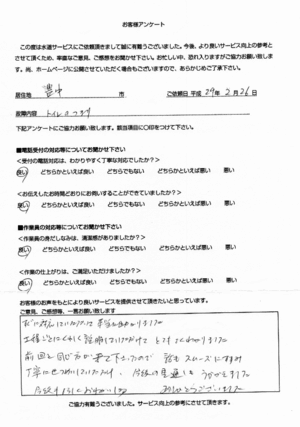 お客様アンケート
この度は水道サービスにご依頼頂きまして誠に有難うございました。今後、より良いサービス向上の参考と
させて頂くため、率直なご意見、ご感想をお聞かせ下さい。お忙しい中、恐れ入りますがご協力お願い致しま
す。尚、ホームページに公開させていただく場合もございますので、あらかじめご了承下さい。
居住地 豊中 市 ご依頼日 平成 29 年 2 月 26 日
故障内容 トイレのつまり
下記アンケートにご協力お願い致します。該当項目に〇印をつけて下さい。
■電話受付の対応等についてお聞かせ下さい
<受付の電話対応は、わかりやすく丁寧な対応でしたか?>
良い どちらかといえば良い どちらでもない どちらかといえば悪い 悪い
<お伝えしたお時間どおりにお伺いすることができていましたか?>
良い どちらかといえば良い どちらでもない どちらかといえば悪い 悪い
■作業員の対応等についてお聞かせ下さい
<作業員の身だしなみは、清潔感がありましたか?>
良い どちらかといえば良い どちらでもない どちらかといえば悪い 悪い
<作業の仕上がりは、ご満足いただけましたか?>
良い どちらかといえば良い どちらでもない どちらかといえば悪い 悪い
お客様のお声をもとにより良いサービスを提供させて頂きたいと思っています。
ご意見、ご感想等、一言お願い致します
前回と同じ方が来て下さったので 話も スムーズにすみ
ありがとうございました
ご協力有難うございました。サービス向上の参考にさせて頂きます。